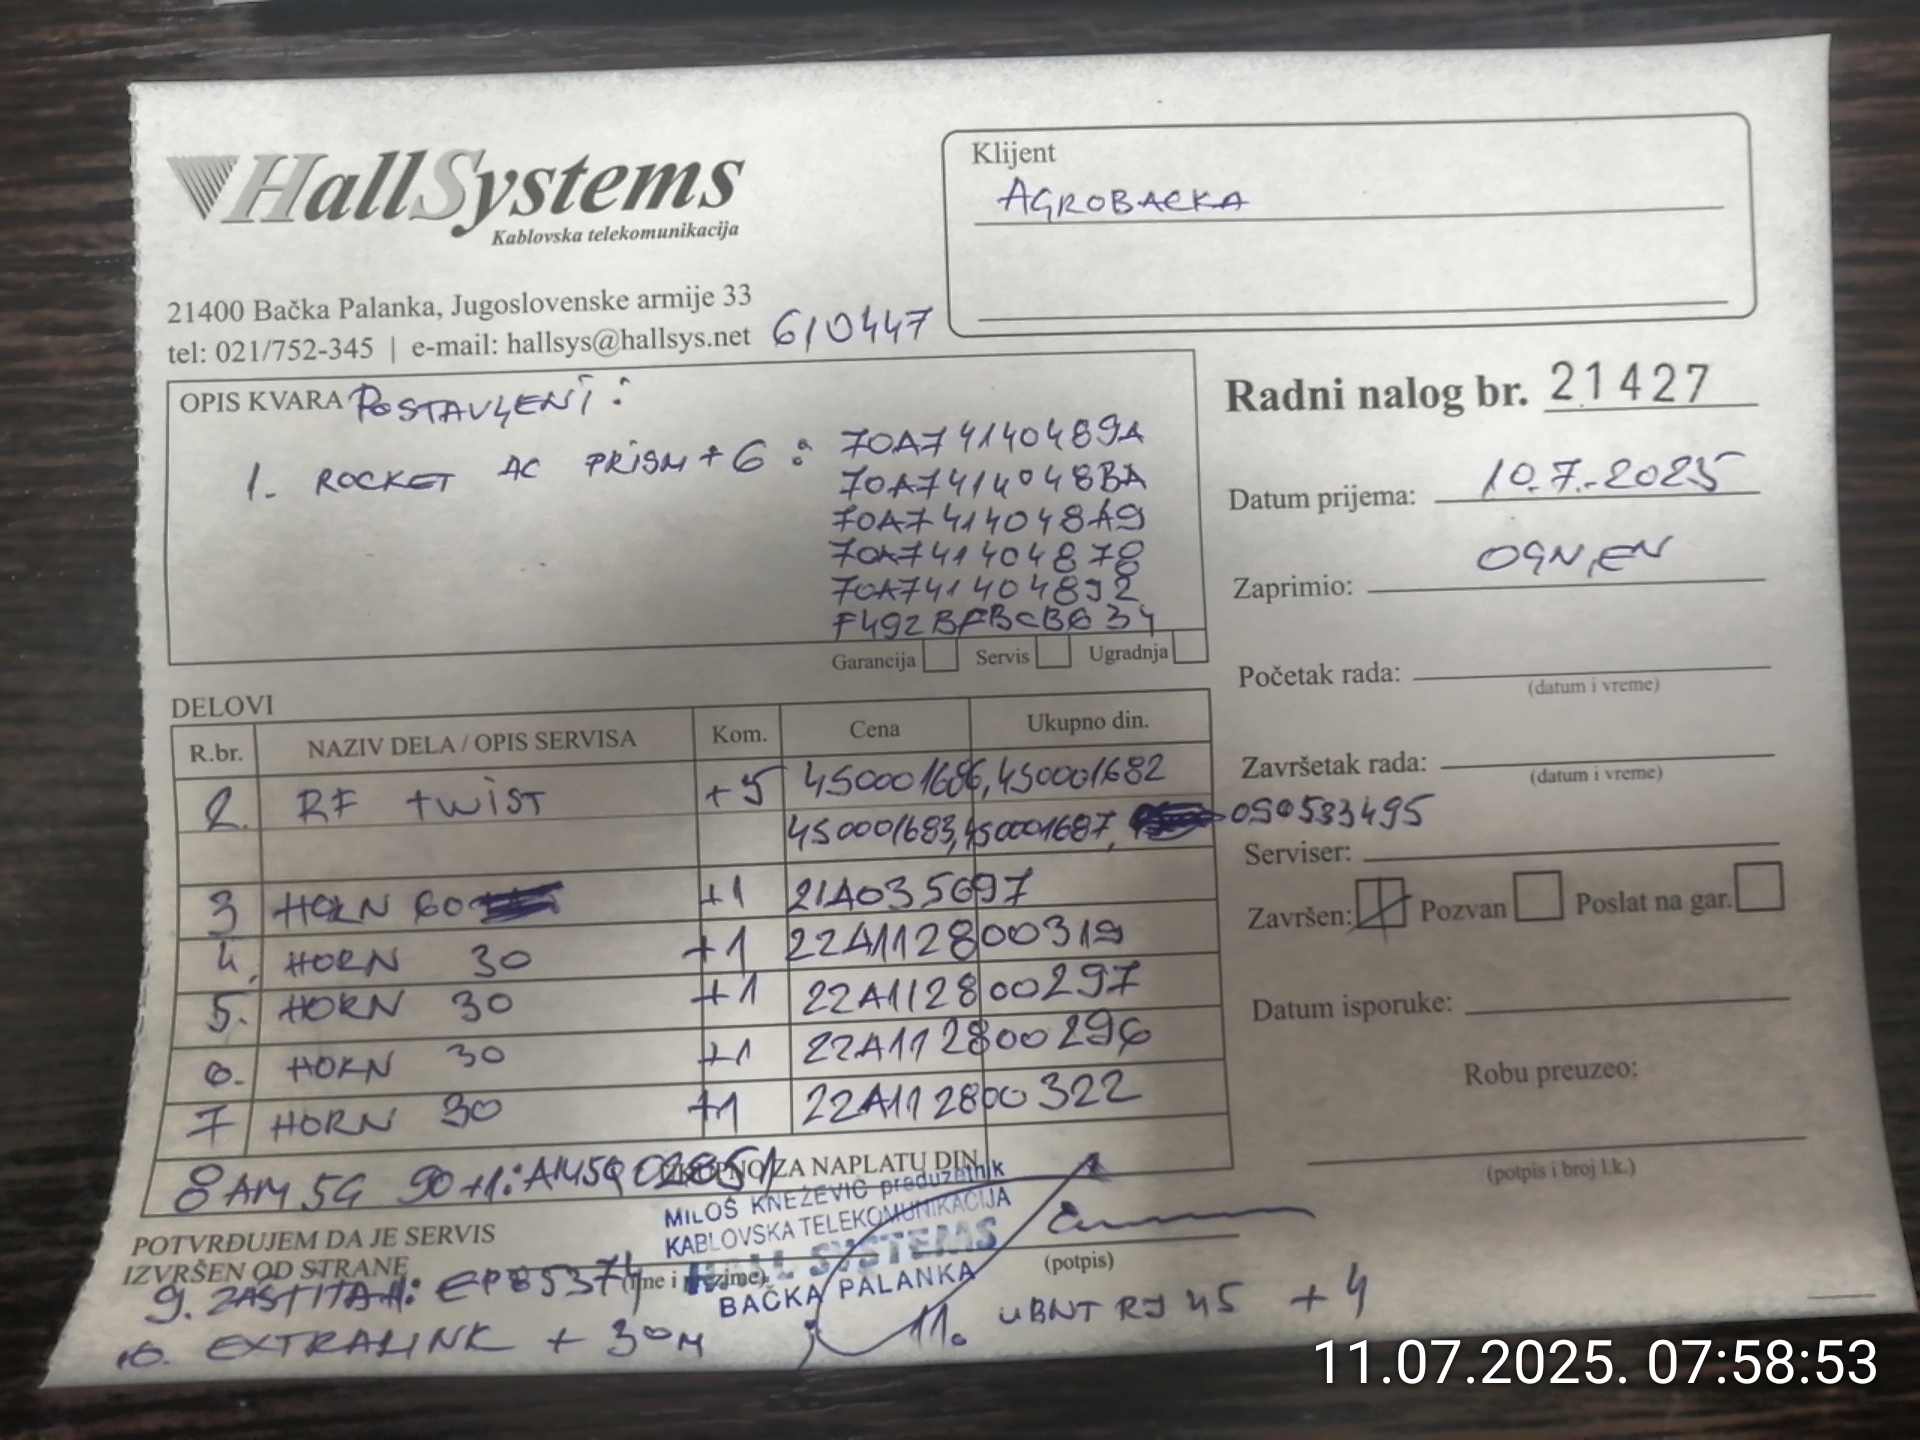 HallSystems
Kablovska telekomunikacija
21400 Bačka Palanka, Jugoslovenske armije 33
tel: 021/752-345 | e-mail: hallsys@hallsys.net 610447
Klijent
AGROBACKA
Radni nalog br. 21427
Datum prijema: 10.7.2025
Zaprimio: OGNJEN
Početak rada:
(datum i vreme)
Završetak rada:
(datum i vreme)
Serviser:
Završen: Pozvan Poslat na gar.
Datum isporuke:
Robu preuzeo:
(potpis i broj l.k.)
OPIS KVARA POSTAVLJENI:
1. ROCKET AC PRISM + 6 : 70A74140489A
70A7414048BA
70A7414048A9
70A741404878
70A741404892
F492BFBCB634
Garancija Servis Ugradnja
DELOVI
R.br. NAZIV DELA / OPIS SERVISA Kom. Cena Ukupno din.
2. RF twist +5 450001686, 450001682
450001683, 450001687, 090533495
3 HORN 60 +1 21A035697
4. HORN 30 +1 22A112800319
5. HORN 30 +1 22A112800297
6. HORN 30 +1 22A112800296
7 HORN 30 +1 22A112800322
UKUPNO ZA NAPLATU DIN.
8 AM 5G 90 +1: AM5G02851
MILOŠ KNEŽEVIĆ preduzetnik
KABLOVSKA TELEKOMUNIKACIJA
HALL SYSTEMS
BAČKA PALANKA
POTVRĐUJEM DA JE SERVIS
IZVRŠEN OD STRANE
(ime i prezime)
(potpis)
9. ZAŠTITA : EP85374
10. EXTRALINK + 30M
11. UBNT RJ 45 + 4
11.07.2025. 07:58:53